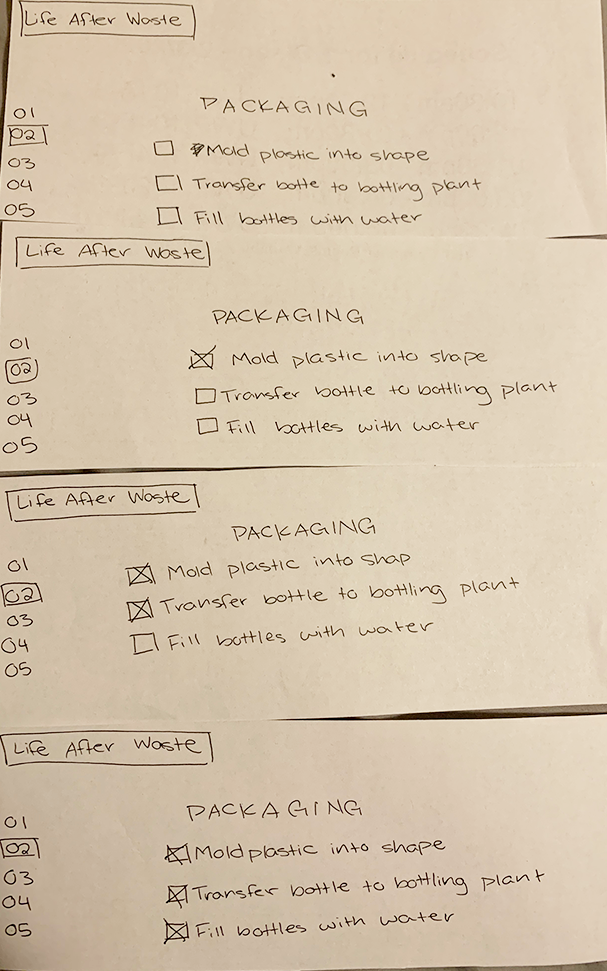 Life After Waste
PACKAGING
01
02
03
04
05
Mold plastic into shape
Transfer bottle to bottling plant
Fill bottles with water
Life After Waste
PACKAGING
01
02
03
04
05
Mold plastic into shape
Transfer bottle to bottling plant
Fill bottles with water
Life After Waste
PACKAGING
01
02
03
04
05
Mold plastic into shap
Transfer bottle to bottling plant
Fill bottles with water
Life After Waste
PACKAGING
01
02
03
04
05
Mold plastic into shape
Transfer bottle to bottling plant
Fill bottles with water